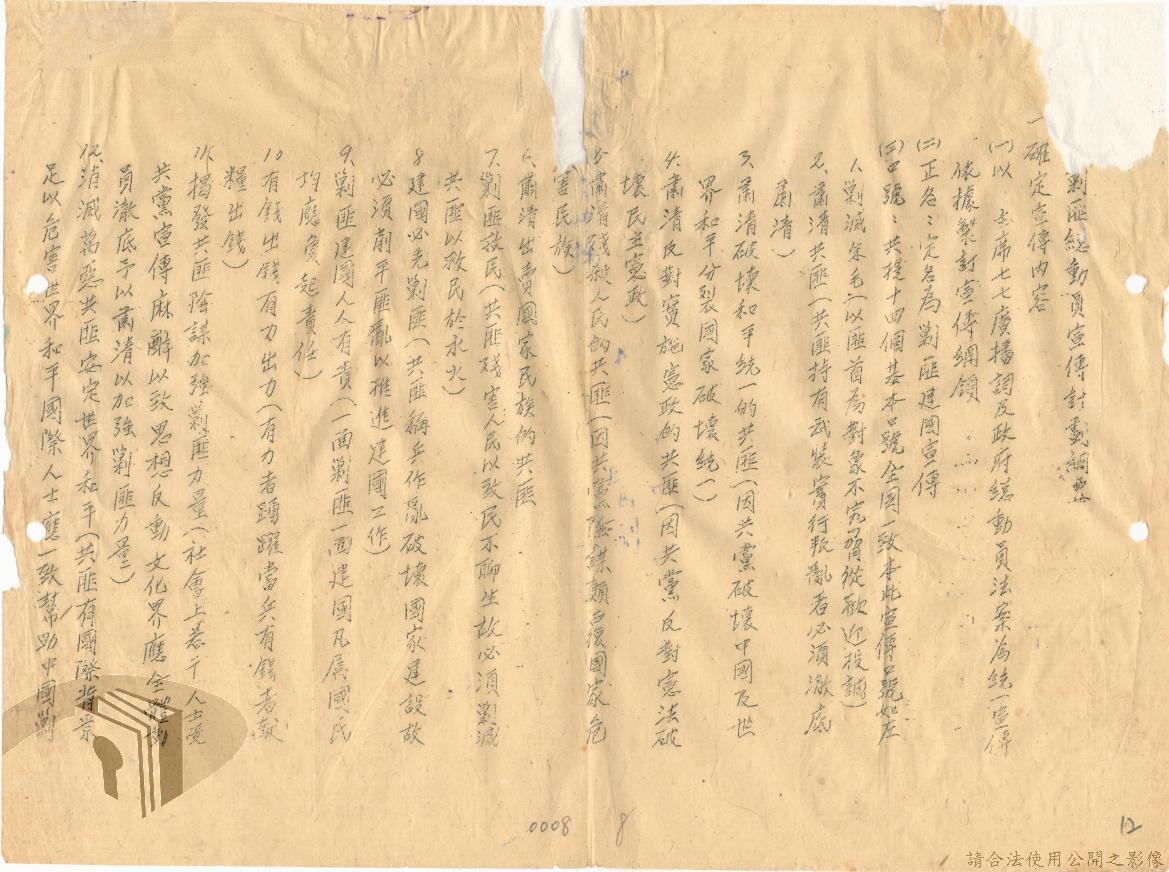 剿匪總動員宣傳計劃綱要
一確定宣傳內容
(一)以 主席七七廣播詞及政府總動員法案為統一宣傳
依據製訂宣傳綱領
(二)正名：定名為剿匪建國宣傳
(三)口號：共提十四個基本口號全國一致本此宣傳口號如左
1、剿滅朱毛(以匪首為對象不究脅從歡迎投誠)
2、肅清共匪(共匪持有武裝實行叛亂者必須澈底
肅清)
3、肅清破壞和平統一的共匪(因共黨破壞中國及世
界和平分裂國家破壞統一)
4、肅清反對實施憲政的共匪(因共黨反對憲法破
壞民主憲政)
5、肅清殘殺人民的共匪(因共黨陰謀顛覆國家危
害民族)
6、肅清出賣國家民族的共匪
7、剿匪救民(共匪殘害人民以致民不聊生故必須剿滅
共匪以救民於水火)
8建國必先剿匪(共匪稱兵作亂破壞國家建設故
必須削平匪亂以推進建國工作)
9、剿匪建國人人有責(一面剿匪一面建國凡屬國民
均應負起責任)
10有錢出錢有力出力(有力者踴躍當兵有錢者獻
糧出錢)
11、揭發共匪陰謀加強剿匪力量(社會上若干人士受
共黨宣傳麻醉以致思想反動文化界應全體動
員澈底予以肅清以加強剿匪力量)
12、消滅萬惡共匪安定世界和平(共匪有國際背景
足以危害世界和平國際人士應一致幫助中國剿
0008
8
12
請合法使用公開之影像